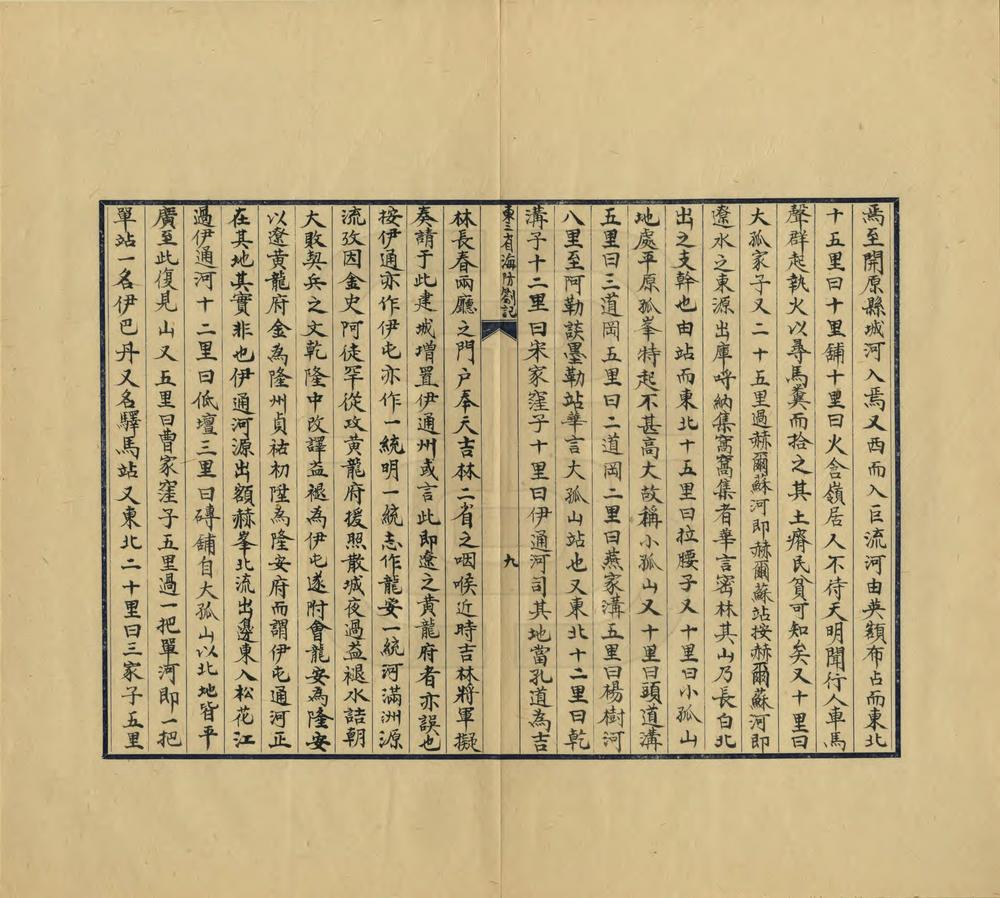 焉至開原縣城河入焉又西而入巨流河由英額布占而東北
十五里曰十里舖十里曰火含嶺居人不待天明聞行人車馬
聲群起執火以尋馬糞而拾之其土瘠民貧可知矣又十里曰
大孤家子又二十五里過赫爾蘇河即赫爾蘇站按赫爾蘇河即
遼水之東源出庫呼納集窩窩集者華言密林其山乃長白北
出之支幹也由站而東北十五里曰拉腰子又十里曰小孤山
地處平原孤峯特起不甚高大故稱小孤山又十里曰頭道溝
五里曰三道岡五里曰二道岡二里曰燕家溝五里曰楊樹河
八里至阿勒談墨勒站華言大孤山站也又東北十二里曰乾
溝子十二里曰宋家窪子十里曰伊通河司其地當孔道為吉
東三省海防劄記
九
林長春兩廳之門户奉天吉林二省之咽喉近時吉林將軍擬
奏請于此建城增置伊通州或言此即遼之黄龍府者亦誤也
按伊通亦作伊屯亦作一統明一統志作龍安一統河滿洲源
流攷因金史阿徒罕從攻黄龍府援照散城夜過益褪水詰朝
大敗契兵之文乾隆中改譯益褪為伊屯遂附會龍安為隆安
以遼黄龍府金為隆州貞祐初陞為隆安府而謂伊屯通河正
在其地其實非也伊通河源出額赫峯北流出邊東入松花江
過伊通河十二里曰低壇三里曰磚舖自大孤山以北地皆平
廣至此復見山又五里曰曹家窪子五里過一把單河即一把
單站一名伊巴丹又名驛馬站又東北二十里曰三家子五里